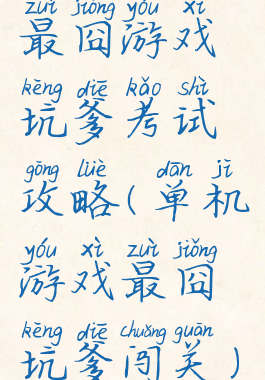 zuì jiǒng yóu xì
最囧游戏
kēng diē kǎo shì
坑爹考试
gōng lüè dān jī
攻略(单机
yóu xì zuì jiǒng
游戏最囧
kēng diē chuǎng guān
坑爹闯关)